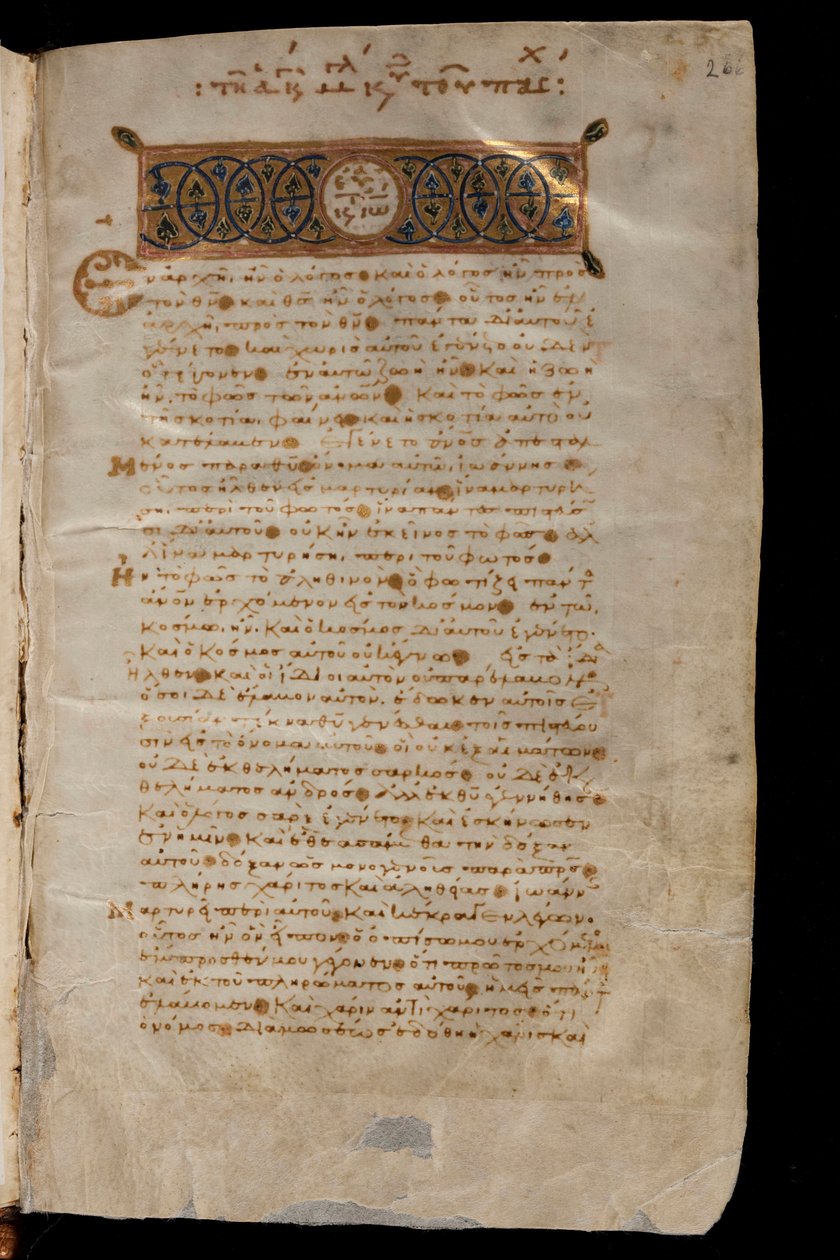 : τῇ ἁγ κ μεγ κυ τοῦ πασχ :
266
ἐν ἀρχῇ, ἦν ὁ λόγος καὶ ὁ λόγος ἦν πρὸς
τὸν θν καὶ θς ἦν ὁ λόγος οὗτος ἦν ἐν
ἀρχῇ, πρὸς τὸν θν πάντα δι αὐτοῦ ἐ
γένετο καὶ χωρὶς αὐτοῦ ἐγένετο οὐδὲ ἓν
ὃ γέγονεν ἐν αὐτῷ ζωὴ ἦν καὶ ἡ ζωὴ
ἦν, τὸ φῶς τῶν ἀνων Καὶ τὸ φῶς ἐν
τῇ σκοτία, φαίνει καὶ ἡ σκοτία αὐτὸ οὐ
κατέλαβεν Ἐγένετο ἀνος ἀπεσταλ
Μένος παρὰ θυ ὄνομα αὐτῷ, ἰωάννης
οὗτος ἦλθεν εἰς μαρτυρίαν ἵνα μαρτυρή
ση, περὶ τοῦ φωτός ἵνα πάντες πιστεύσω
σι δι αὐτοῦ οὐκ ἦν ἐκεῖνος τὸ φῶς ἀλ
λ ἵνα μαρτυρήση, περὶ τοῦ φωτός
Ἦν τὸ φῶς τὸ ἀληθινὸν ὃ φωτίζει πάντα
ἀνον ἐρχόμενον εἰς τὸν κόσμον ἐν τῶ,
κόσμω, ἦν. Καὶ ὁ κόσμος δι αὐτοῦ ἐγένετο.
Καὶ ὁ κόσμος αὐτὸν οὐκ ἔγνω εἰς τὰ ἴδια
Ἦλθεν καὶ οἱ ἴδιοι αὐτὸν οὐ παρέλαβον
ὅσοι δὲ ἔλαβον αὐτὸν, ἔδωκεν αὐτοῖς ἐ
ξουσίαν τέκνα θυ γενέσθαι τοῖς πιστεύου
σιν εἰς τὸ ὄνομα αὐτοῦ οἳ οὐκ ἐξ αἱμάτων
οὐδὲ ἐκ θελήματος σαρκὸς οὐδὲ ἐκ
θελήματος ἀνδρός ἀλλ ἐκ θυ ἐγεννήθησαν
Καὶ ὁ λόγος σὰρξ ἐγένετο Καὶ ἐσκήνωσεν
ἐν ἡμῖν Καὶ ἐθεασάμεθα τὴν δόξαν
αὐτοῦ δόξαν ὡς μονογενοῦς παρὰ πρς
πλήρης χάριτος Καὶ ἀληθείας ἰωάννης
Μαρτυρεῖ περὶ αὐτοῦ Καὶ κέκραγεν λέγων.
οὗτος ἦν ὃν εἶπον ὁ ὀπίσω μου ἐρχόμενος
ἔμπροσθέν μου γέγονεν ὅτι πρῶτός μου ἦν
καὶ ἐκ τοῦ πληρώματος αὐτοῦ, ἡμεῖς πάντες
ἐλάβομεν Καὶ χάριν ἀντὶ χάριτος ὅτι
ὁ νόμος διὰ μωσέως ἐδόθη ἡ χάρις Καὶ